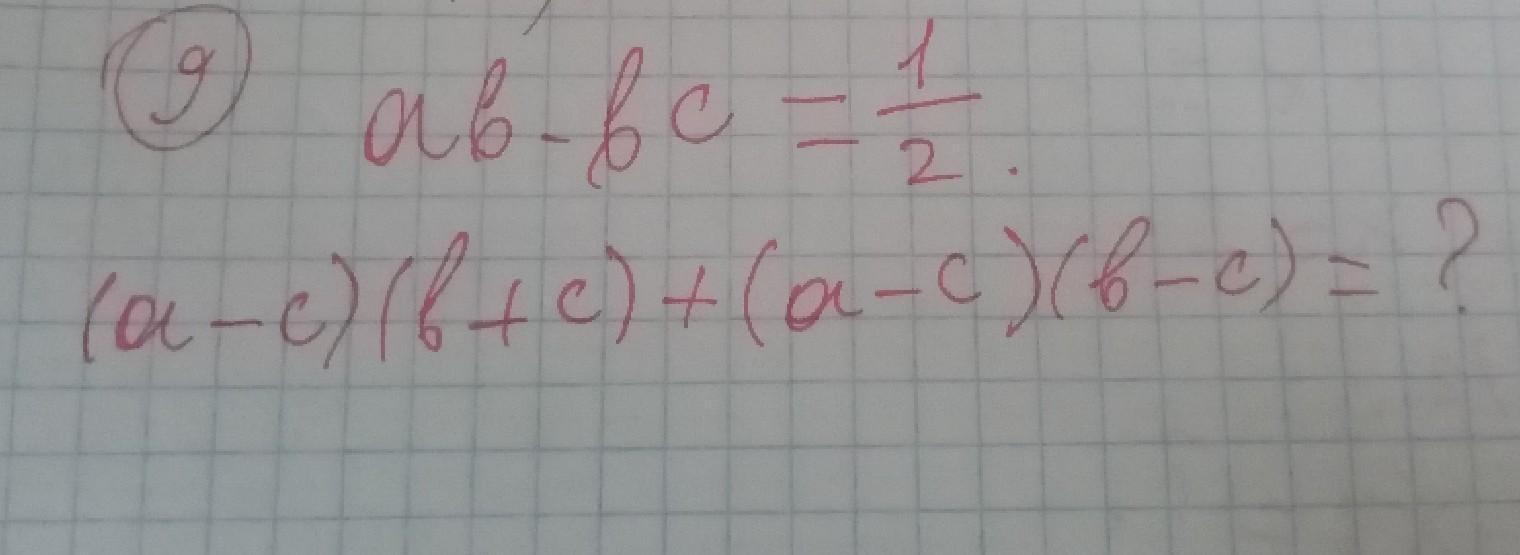 9 ab-bc = 1/2.
(a-c)(b+c)+(a-c)(b-c)=?